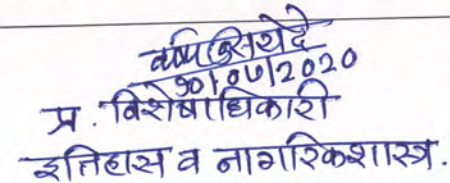 १०/०७/2020
प्र. विशेषाधिकारी
इतिहास व नागरिकशास्त्र.